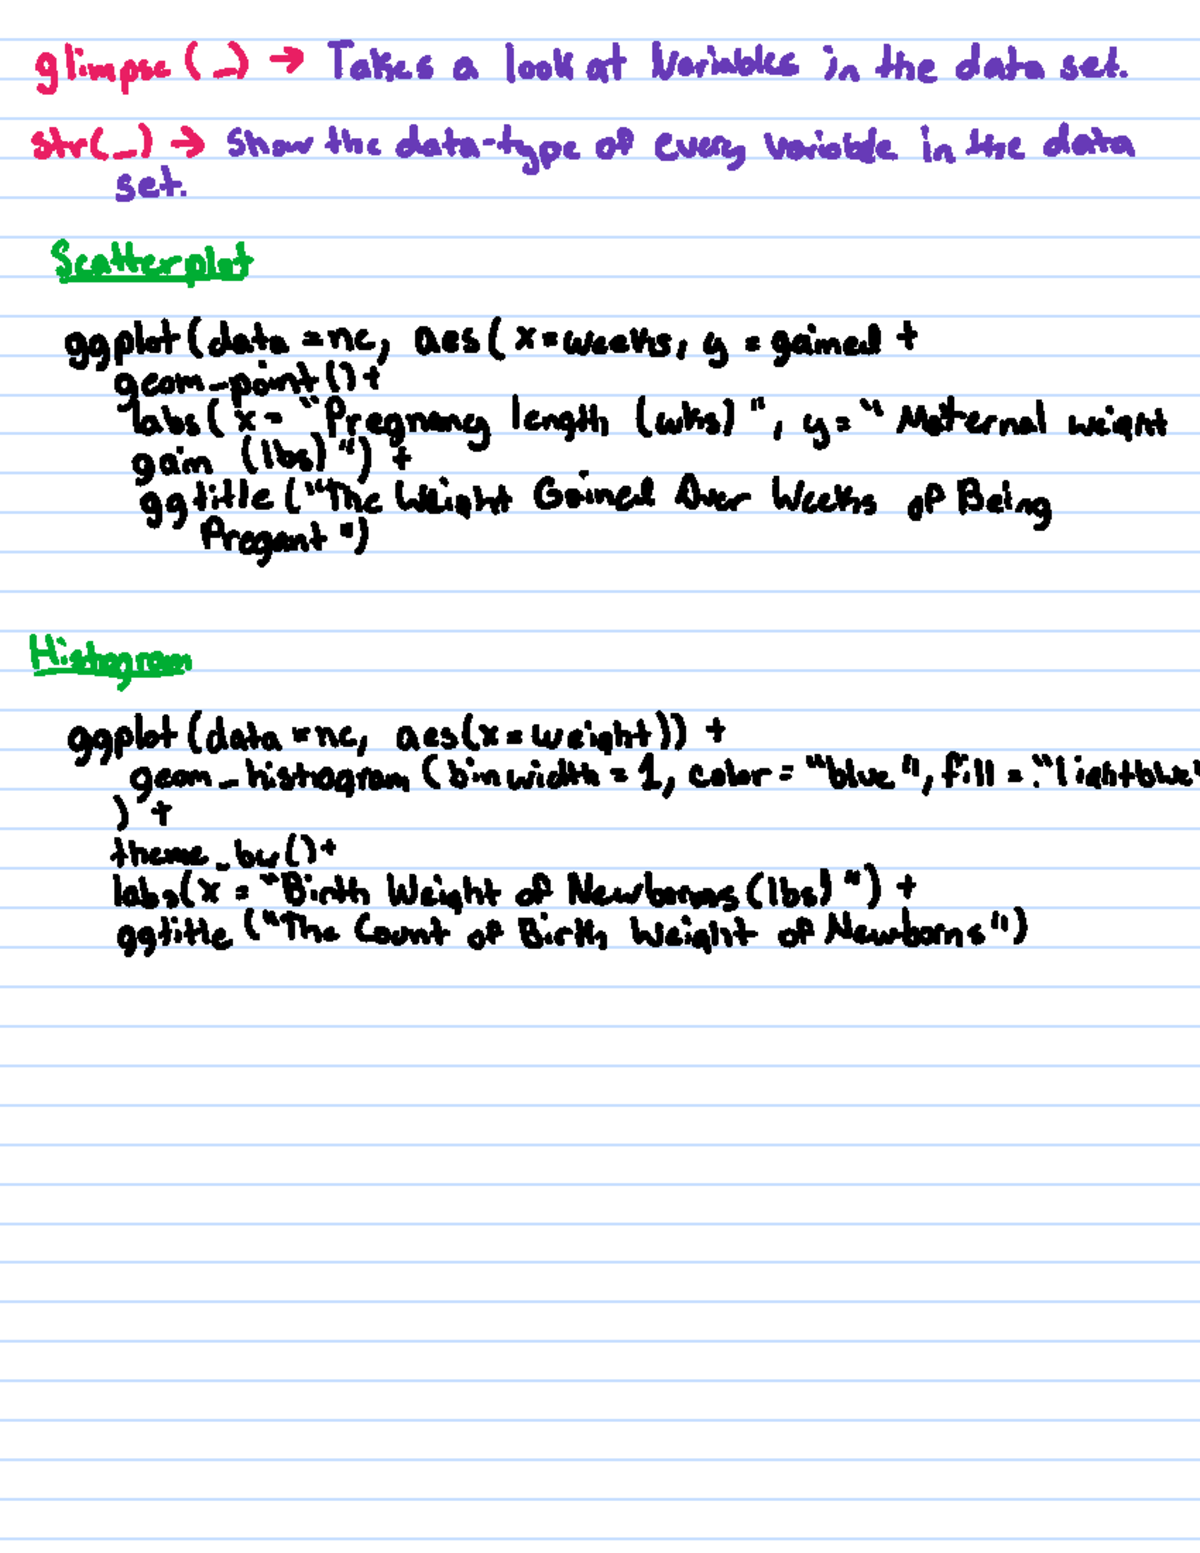 glimpse (_) → Takes a look at Variables in the data set.
str(_) → Show the data-type of every variable in the data
set.
Scatterplot
ggplot (data = nc, aes ( x = weeks, y = gained +
geom_point () +
labs ( x = "Pregnancy length (wks) ", y = " Maternal weight
gain (lbs) ") +
ggtitle ("The Weight Gained Over Weeks of Being
Pregant ")
Histogram
ggplot (data = nc, aes(x = weight)) +
geom_histogram (binwidth = 1, color = "blue", fill = "lightblue"
) +
theme_bw() +
labs(x = "Birth Weight of Newborns (lbs) ") +
ggtitle ("The Count of Birth Weight of Newborns")